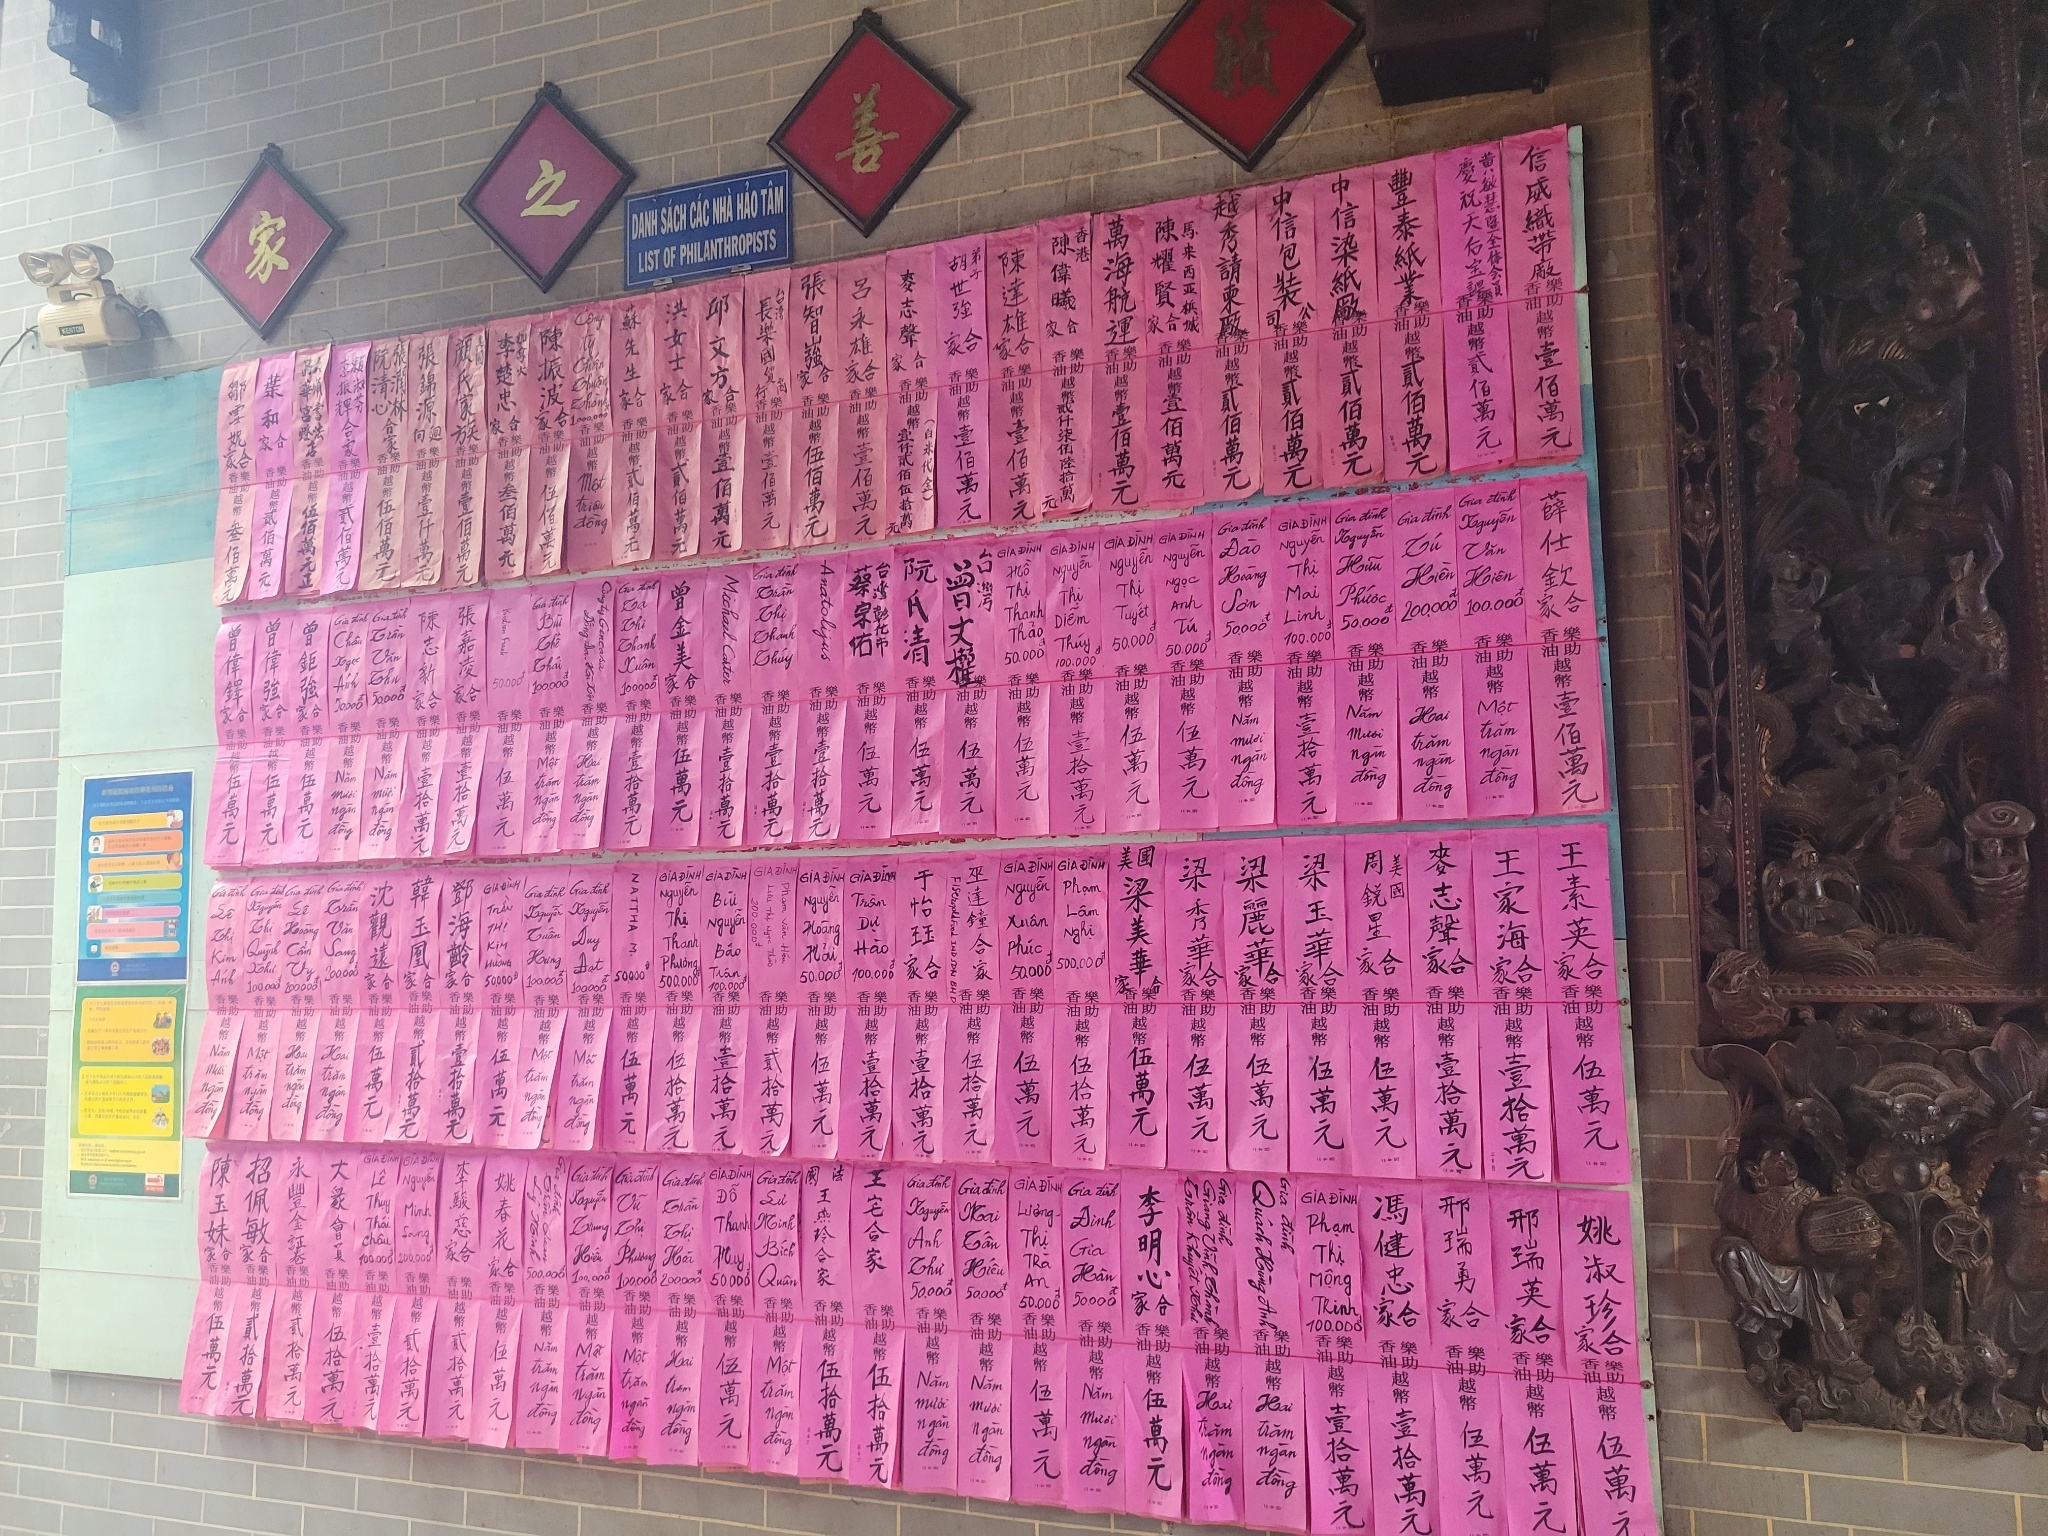 積
善
之
家
DANH SÁCH CÁC NHÀ HẢO TÂM
LIST OF PHILANTHROPISTS
KENTOM
信成織帶廠 樂助香油越幣 壹佰萬元
慶祝天后宝誕 樂助香油越幣 貳佰萬元
豐泰紙業 樂助香油越幣 貳佰萬元
中信染紙廠 樂助香油越幣 貳佰萬元
中信包裝公司 樂助香油越幣 貳佰萬元
越秀請柬廠 樂助香油越幣 貳佰萬元
馬來西亞檳城 陳耀賢合家 樂助香油越幣 壹佰萬元
萬海航運 樂助香油越幣 壹佰萬元
香港 陳偉曦合家 樂助香油越幣 貳仟柒佰陸拾萬元
陳達雄合家 樂助香油越幣 壹佰萬元
弟子 胡世強合家 樂助香油越幣 壹佰萬元
麥志聲合家 樂助香油越幣 壹仟貳佰伍拾萬元 (白米代金)
呂永雄合家 樂助香油越幣 壹佰萬元
張智強合家 樂助香油越幣 伍佰萬元
台灣 長樂國貿商行 樂助香油越幣 壹佰萬元
邱文方合家 樂助香油越幣 壹佰萬元
洪女士合家 樂助香油越幣 貳佰萬元
蘇先生合家 樂助香油越幣 貳佰萬元
Công Ty Chấn Thuận Thành 1000.000đ 樂助香油越幣 Một triệu đồng
陳振波合家 樂助香油越幣 伍佰萬元
李楚忠合家 樂助香油越幣 叁佰萬元
顏氏家族 樂助香油越幣 壹佰萬元
張錦源 樂助香油越幣 壹仟萬元
張潤林 阮清心合家 樂助香油越幣 伍佰萬元
李振輝合家 樂助香油越幣 貳佰萬元
樂助香油越幣 伍佰萬元正
葉和合家 樂助香油越幣 貳佰萬元
鄒雲妮合家 樂助香油越幣 叁佰萬元
薛仕欽合家 樂助香油越幣 壹佰萬元
Gia đình Nguyễn Văn Hiên 100.000đ 樂助香油越幣 Một trăm ngàn đồng
Gia đình Tú Hiền 200.000đ 樂助香油越幣 Hai trăm ngàn đồng
Gia đình Nguyễn Hữu Phước 50.000đ 樂助香油越幣 Năm mươi ngàn đồng
GIA ĐÌNH Nguyễn Thị Mai Linh 100.000đ 樂助香油越幣 壹拾萬元
Gia đình Đào Hoàng Sơn 50.000đ 樂助香油越幣 Năm mươi ngàn đồng
Nguyễn Ngọc Anh Tú 50.000đ 樂助香油越幣 伍萬元
GIA ĐÌNH Nguyễn Thị Tuyết 50.000đ 樂助香油越幣 伍萬元
GIA ĐÌNH Nguyễn Thị Diễm Thúy 100.000đ 樂助香油越幣 壹拾萬元
GIA ĐÌNH Hồ Thị Thanh Thảo 50.000đ 樂助香油越幣 伍萬元
台灣 曾文 樂助香油越幣 伍萬元
阮氏清 樂助香油越幣 伍萬元
台灣彰化市 蔡宗佑 樂助香油越幣 伍萬元
Anatolijus 樂助香油越幣 壹拾萬元
Gia đình Trần Thị Thanh Thúy 樂助香油越幣 壹拾萬元
Michael Cater 樂助香油越幣 壹拾萬元
曾金美合家 樂助香油越幣 伍萬元
Gia đình Tạ Thị Thanh Xuân 100000đ 樂助香油越幣 壹拾萬元
樂助香油越幣 Hai trăm ngàn đồng
Gia đình Bùi Thế Thái 100000đ 樂助香油越幣 Một trăm ngàn đồng
50.000đ 樂助香油越幣 伍萬元
張嘉凌合家 樂助香油越幣 壹拾萬元
陳志新合家 樂助香油越幣 壹拾萬元
Gia đình Trần Văn Thu 50.000đ 樂助香油越幣 Năm mươi ngàn đồng
Gia đình Châu Ngọc Ánh 50000đ 樂助香油越幣 Năm mươi ngàn đồng
曾鉅強合家 樂助香油越幣 伍萬元
曾偉強合家 樂助香油越幣 伍萬元
曾偉鐸合家 樂助香油越幣 伍萬元
王素英合家 樂助香油越幣 伍萬元
王家海合家 樂助香油越幣 壹拾萬元
麥志聲合家 樂助香油越幣 壹拾萬元
美國 周銳星合家 樂助香油越幣 伍萬元
梁玉華合家 樂助香油越幣 伍萬元
梁麗華合家 樂助香油越幣 伍萬元
梁秀華合家 樂助香油越幣 伍萬元
美國 梁美華合家 樂助香油越幣 伍萬元
GIA ĐÌNH Phạm Lâm Nghi 500.000đ 樂助香油越幣 伍拾萬元
GIA ĐÌNH Nguyễn Xuân Phúc 50.000đ 樂助香油越幣 伍萬元
巫達鐘合家 樂助香油越幣 伍拾萬元
于怡珏合家 樂助香油越幣 壹拾萬元
GIA ĐÌNH Trần Dự Hào 100.000đ 樂助香油越幣 壹拾萬元
GIA ĐÌNH Nguyễn Hoàng Hải 50.000đ 樂助香油越幣 伍萬元
200.000đ 樂助香油越幣 貳拾萬元
GIA ĐÌNH Bùi Nguyễn Bảo Trân 100.000đ 樂助香油越幣 壹拾萬元
GIA ĐÌNH Nguyễn Thị Thanh Phương 500.000đ 樂助香油越幣 伍拾萬元
50000đ 樂助香油越幣 伍萬元
Gia đình Nguyễn Duy Đạt 100000đ 樂助香油越幣 Một trăm ngàn đồng
Gia đình Nguyễn Tuấn Hưng 100.000đ 樂助香油越幣 Một trăm ngàn đồng
GIA ĐÌNH TRẦN THỊ KIM HƯƠNG 50000đ 樂助香油越幣 伍萬元
鄧海齡合家 樂助香油越幣 壹拾萬元
韓玉鳳合家 樂助香油越幣 貳拾萬元
沈觀遠合家 樂助香油越幣 伍萬元
Gia đình Trần Văn Sang 200000đ 樂助香油越幣 Hai trăm ngàn đồng
Gia đình Lê Hoàng Cẩm Vy 樂助香油越幣 Hai trăm ngàn đồng
Gia đình Nguyễn Thị Quỳnh Như 100.000đ 樂助香油越幣 Một trăm ngàn đồng
Gia đình Lê Thị Kim Anh 樂助香油越幣 Năm mươi ngàn đồng
姚淑珍合家 樂助香油越幣 伍萬元
邢瑞英合家 樂助香油越幣 伍萬元
邢瑞勇合家 樂助香油越幣 伍萬元
馮健忠合家 樂助香油越幣 壹拾萬元
GIA ĐÌNH Phạm Thị Mộng Trinh 100.000đ 樂助香油越幣 壹拾萬元
Gia đình Quách Hồng Anh 樂助香油越幣 Hai trăm ngàn đồng
Gia đình Giang Vĩnh Thành 樂助香油越幣 Hai trăm ngàn đồng
李明心合家 樂助香油越幣 伍萬元
Gia đình Đinh Gia Hân 50000đ 樂助香油越幣 Năm mươi ngàn đồng
GIA ĐÌNH Lương Thị Trà An 50.000đ 樂助香油越幣 伍萬元
Gia đình Mai Tấn Hiếu 50.000đ 樂助香油越幣 Năm mươi ngàn đồng
Gia đình Nguyễn Anh Thư 50.000đ 樂助香油越幣 Năm mươi ngàn đồng
王宅合家 樂助香油越幣 伍拾萬元
法國 王燕玲合家 樂助香油越幣 伍拾萬元
Gia đình Lư Minh Bích Quân 樂助香油越幣 Một trăm ngàn đồng
GIA ĐÌNH Đỗ Thanh Huy 50.000đ 樂助香油越幣 伍萬元
Gia đình Trần Thị Hoà 200000đ 樂助香油越幣 Hai trăm ngàn đồng
Gia đình Vũ Thị Phương 100.000đ 樂助香油越幣 Một trăm ngàn đồng
Gia đình Nguyễn Trung Hiếu 100.000đ 樂助香油越幣 Một trăm ngàn đồng
500.000đ 樂助香油越幣 Năm trăm ngàn đồng
姚春花合家 樂助香油越幣 伍萬元
李駿忞合家 樂助香油越幣 貳拾萬元
Nguyễn Minh Sang 200.000đ 樂助香油越幣 貳拾萬元
GIA ĐÌNH Lê Thụy Thái Châu 100.000đ 樂助香油越幣 壹拾萬元
大眾會員 樂助香油越幣 伍拾萬元
永豐金証券 樂助香油越幣 貳拾萬元
招佩敏合家 樂助香油越幣 貳拾萬元
陳玉妹合家 樂助香油越幣 伍萬元